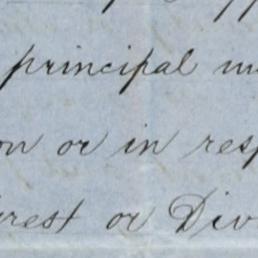 principal m
on or in resp
erest or Div